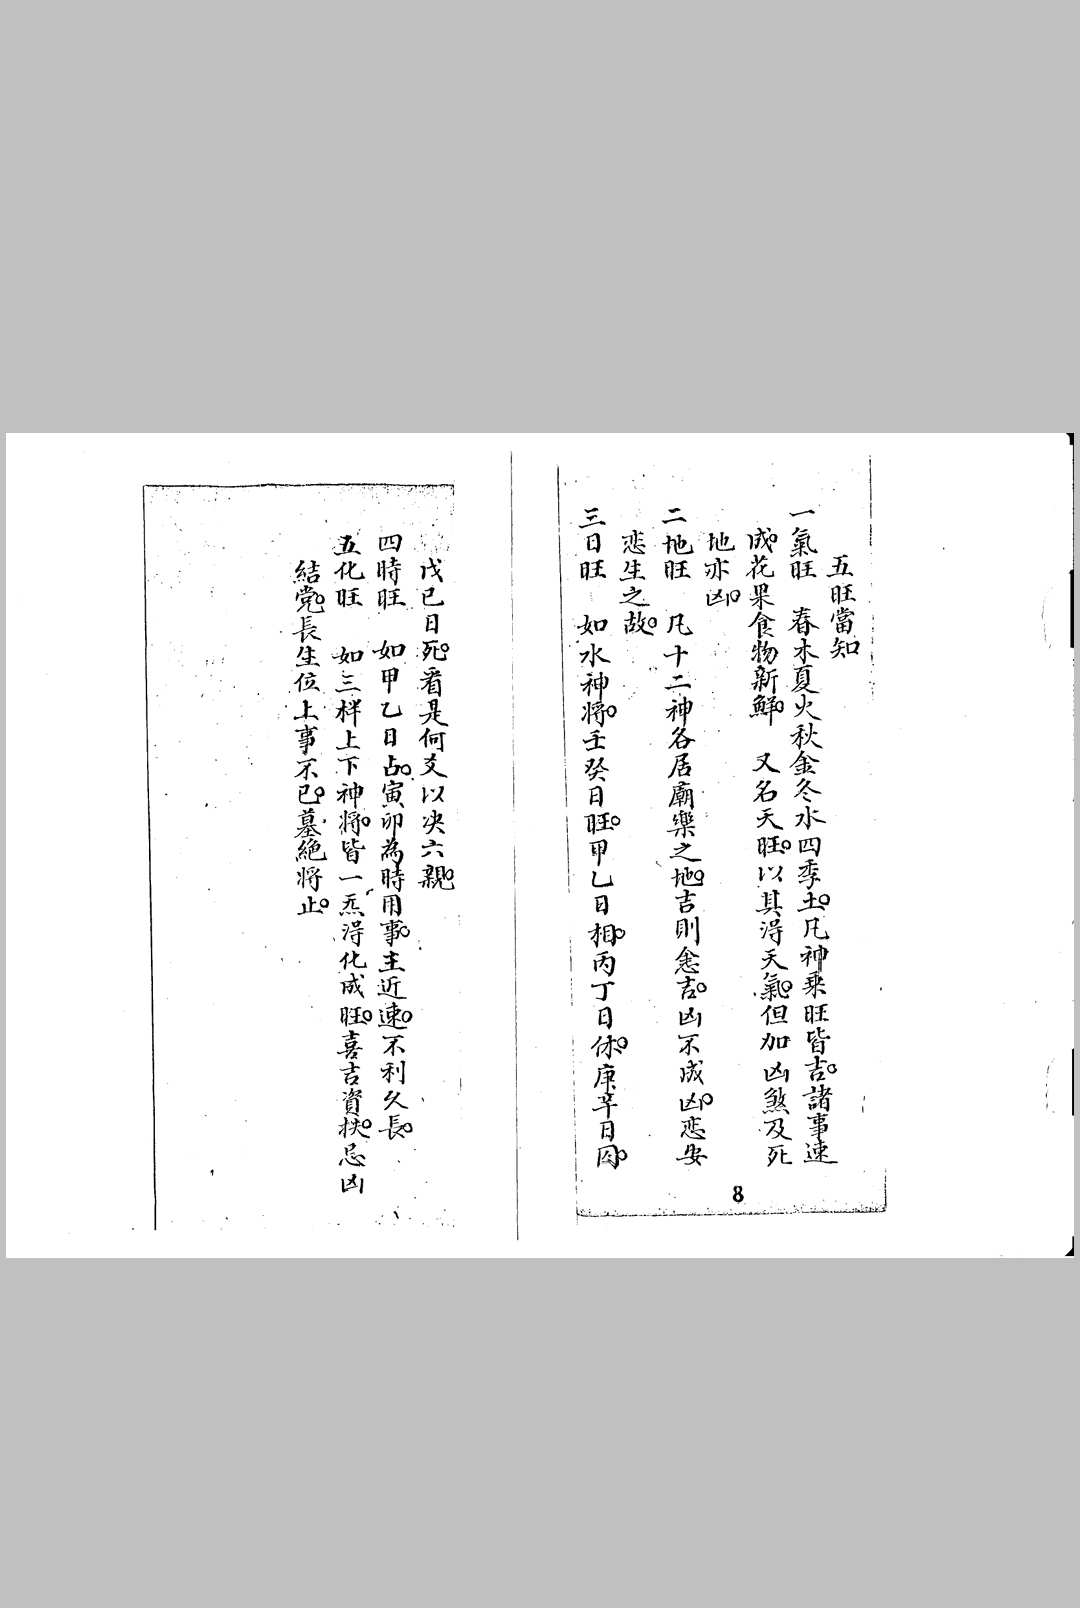 五旺當知
一氣旺　春木夏火秋金冬水四季土。凡神乘旺皆吉。諸事速
成。花果食物新鮮。　又名天旺。以其得天氣。但加凶煞及死
地亦凶。
二地旺　凡十二神各居廟樂之地。吉則愈吉。凶不成凶。恋安
恋生之故。
三日旺　如水神将。壬癸日旺。甲乙日相。丙丁日休。庚辛日囚。
戊己日死。看是何爻以决六親。
四時旺　如甲乙日占。寅卯為時用事。主近速。不利久長。
五化旺　如三样上下神将。皆一炁淂化成旺。喜吉資扶。忌凶
結党。長生位上事不已。墓絶将止。
8